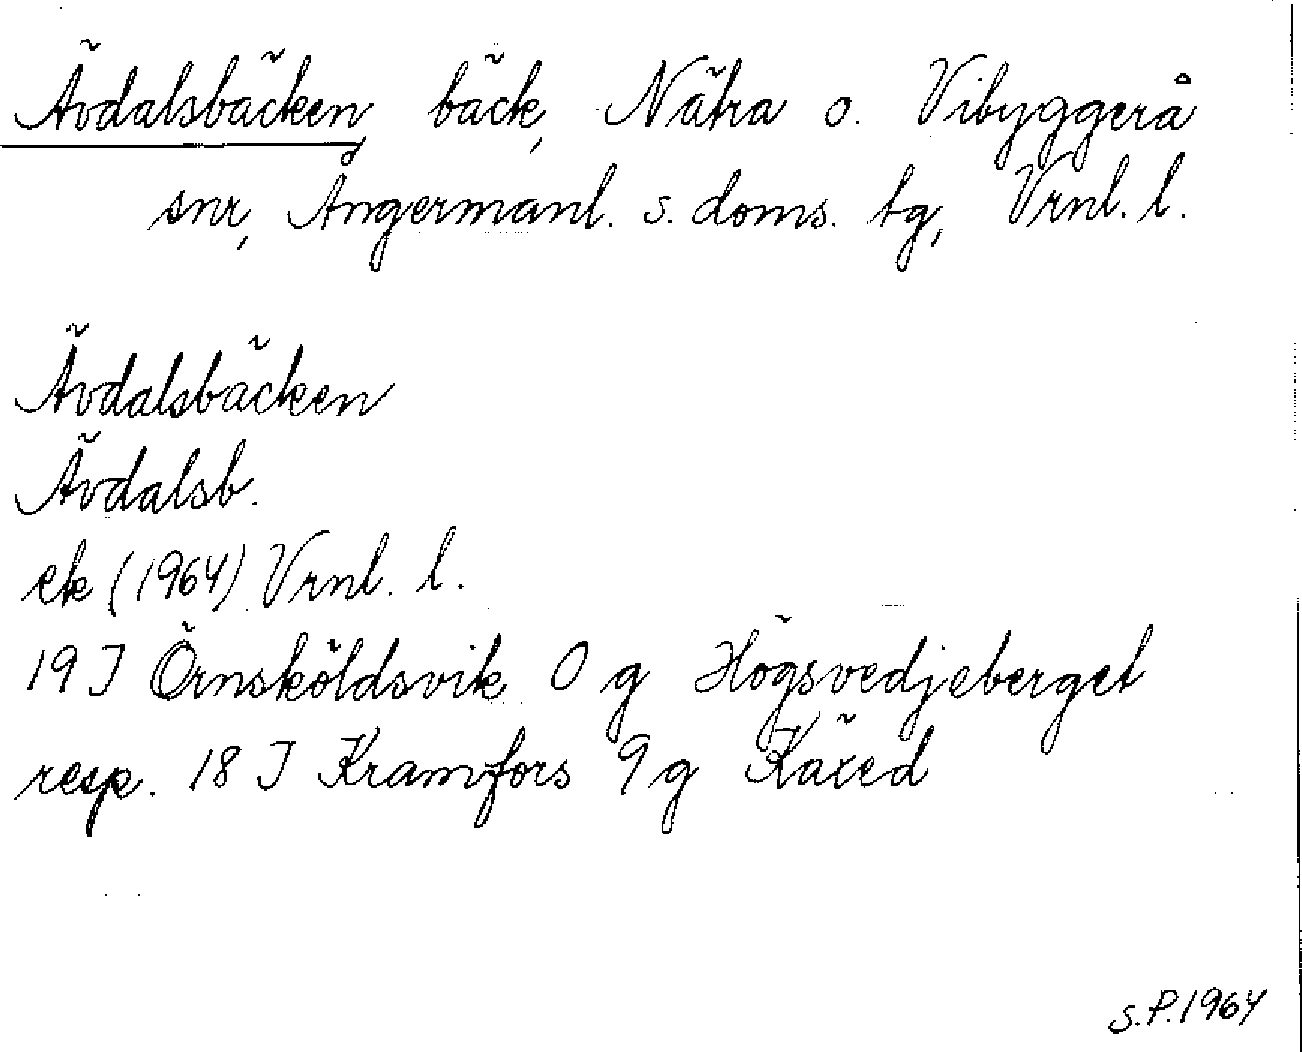 Ävdalsbäcken, bäck, Nätra o. Vibyggerå
snr, Ångermanl. s. doms. tg, Vrnl. l.
Ävdalsbäcken
Ävdalsb.
ek (1964) Vrnl. l.
19 J Örnsköldsvik 0 g Högsvedjeberget
resp. 18 J Kramfors 9 g Käxed
S.P.1964